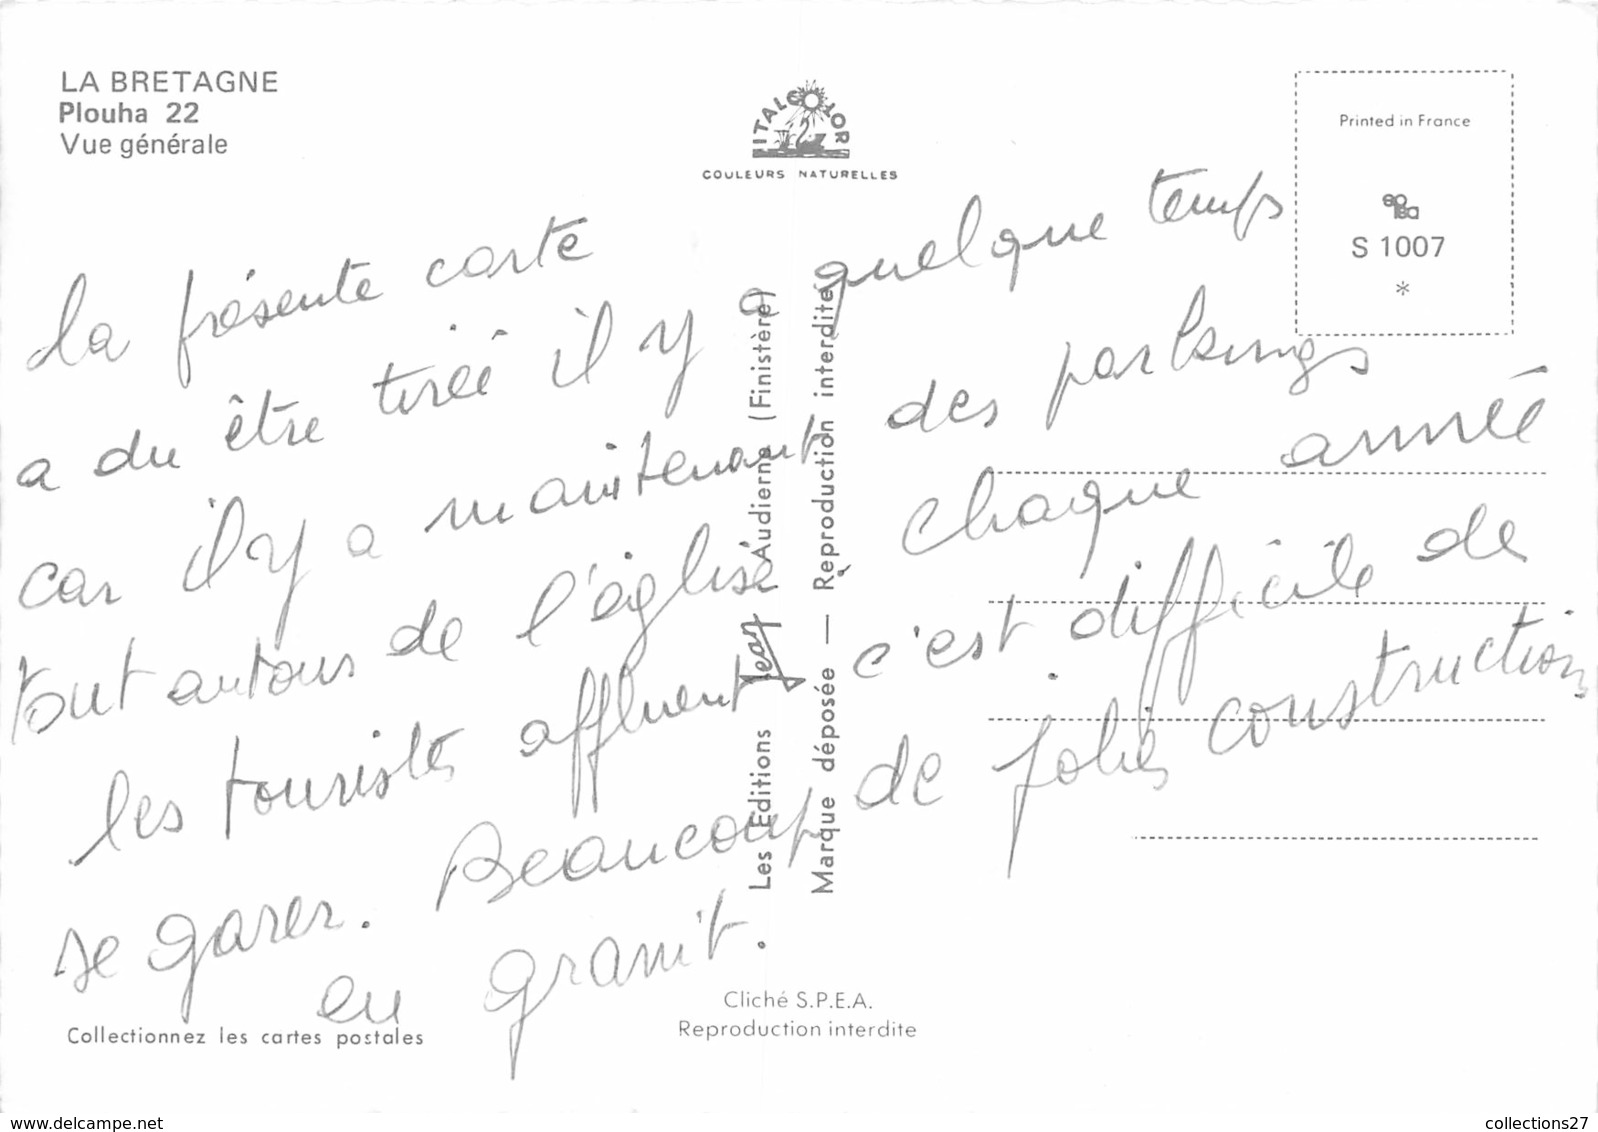 LA BRETAGNE
Plouha 22
Vue générale
ITALCOLOR
COULEURS NATURELLES
Printed in France
S 1007
*
La présente carte
a du être tirée il y a quelque temps
car il y a maintenant des parkings
tout autour de l'église chaque année
les touristes affluent c'est difficile de
se garer. Beaucoup de jolies construction
en granit.
Les Editions Jean Audierne (Finistère)
Marque déposée — Reproduction interdite
Cliché S.P.E.A.
Reproduction interdite
Collectionnez les cartes postales
collections27